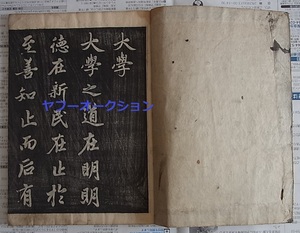 大學
大學之道在明明
德在新民在止於
至善知止而后有
ヤフーオークション